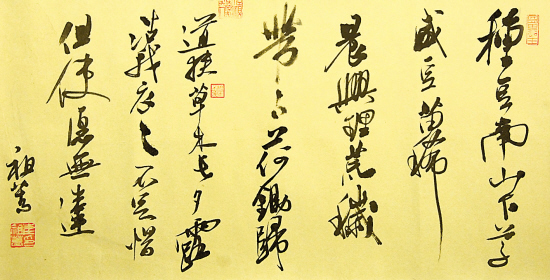 種豆南山下草
盛豆苗稀
晨興理荒穢
帶月荷鋤歸
道狹草木長夕露
沾我衣々不足惜
但使愿無違
祖